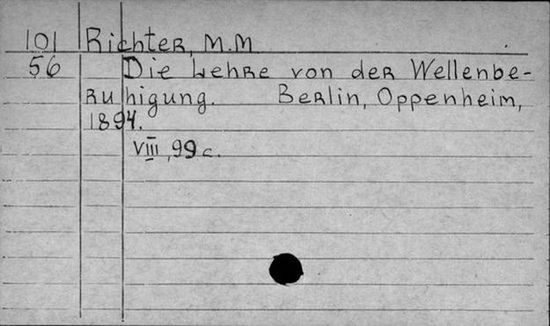 101 Richter, M.M
56 Die Lehre von der Wellenbe-
ruhigung. Berlin, Oppenheim,
1894.
VIII, 99 c.